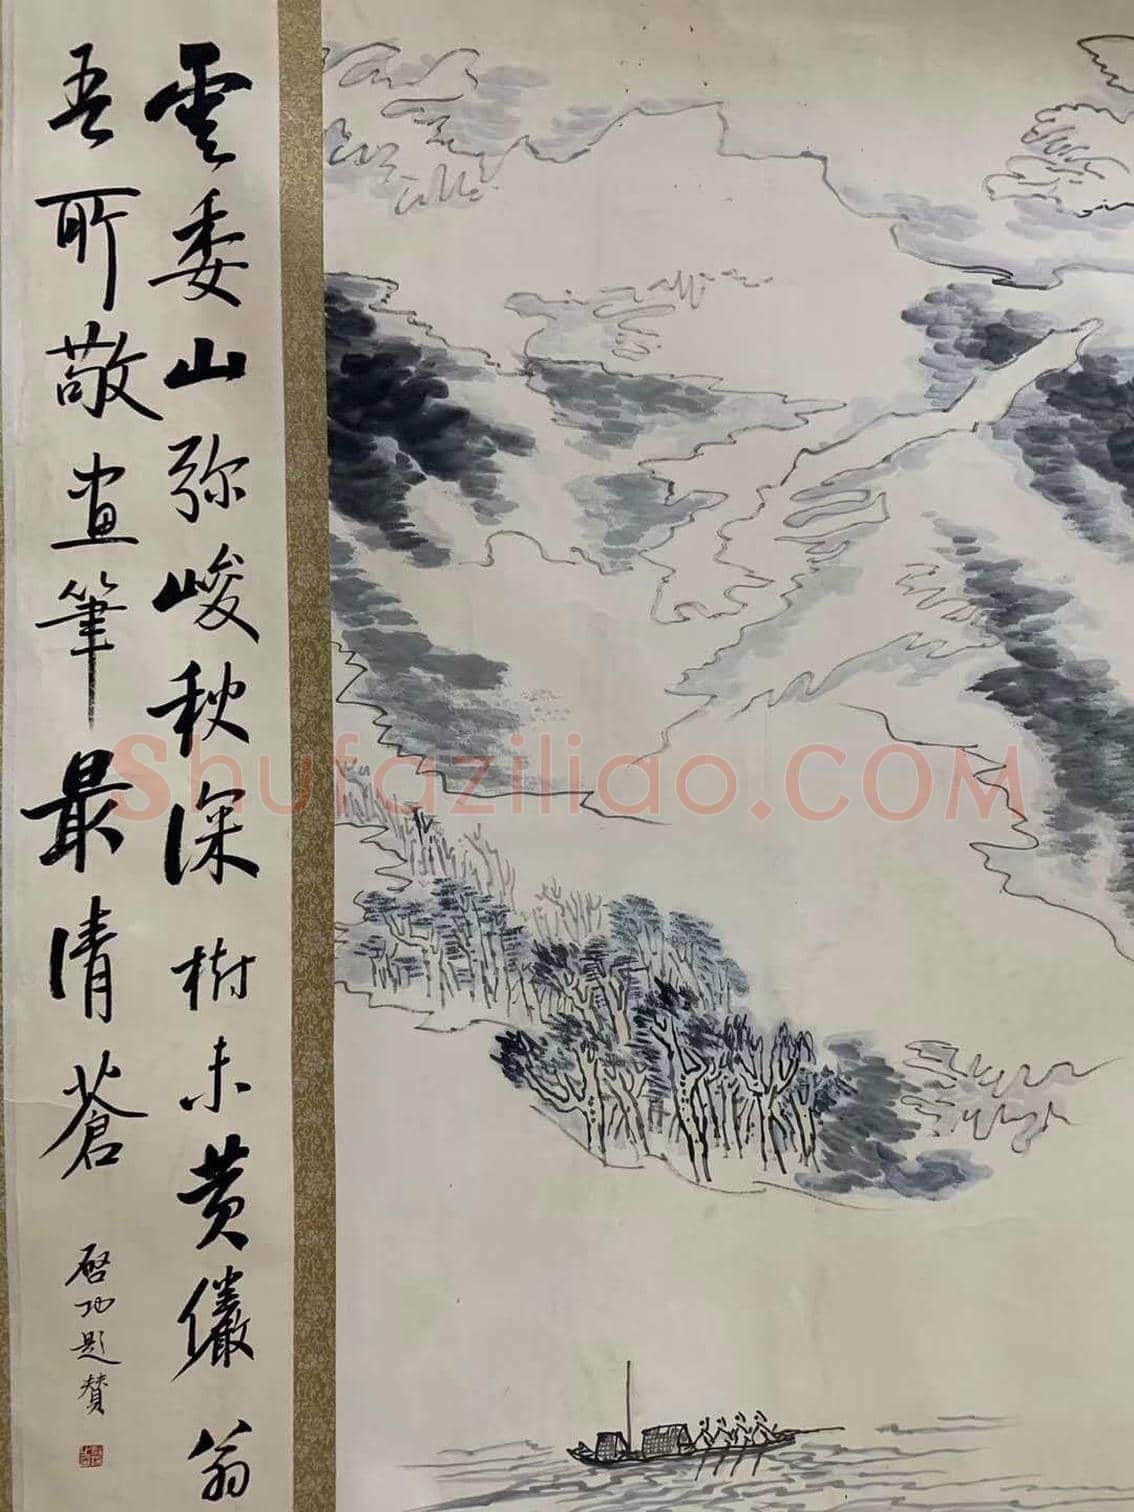 雲委山弥峻秋深樹未黄儼翁
吾所敬畫筆最清蒼
啓功題贊
Shufaziliao.COM